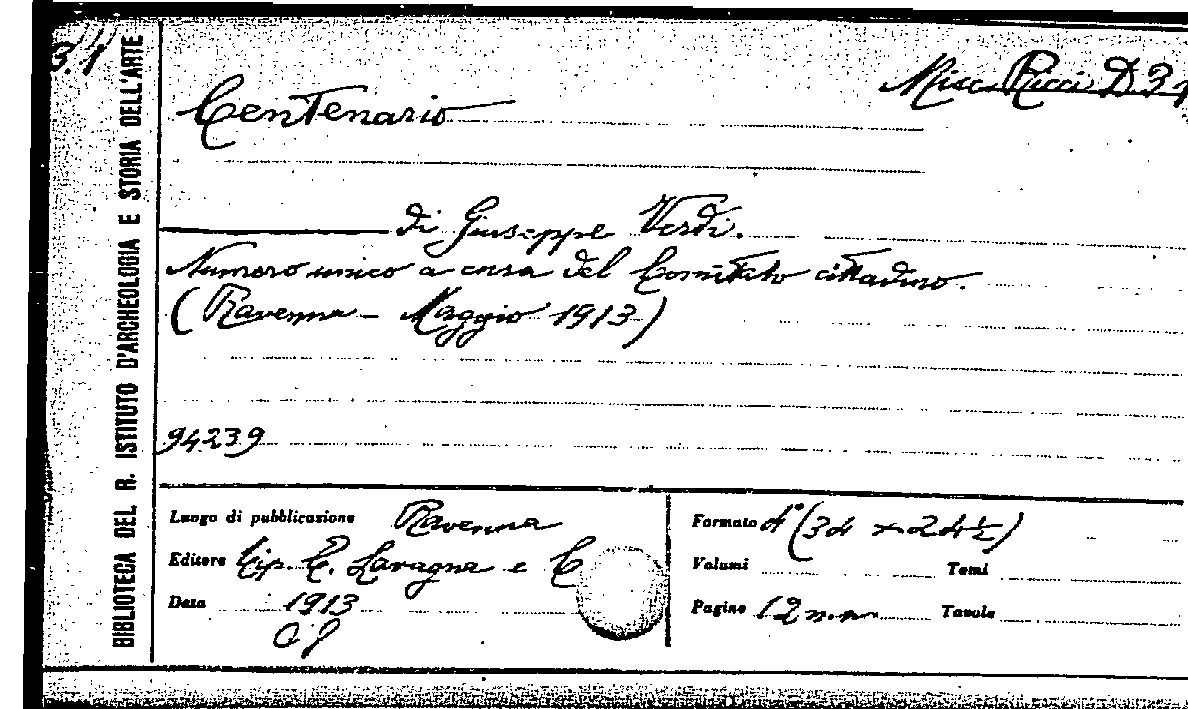 Misc. Ricci D 3
Centenario
di Giuseppe Verdi.
Numero unico a cura del Comitato cittadino.
(Ravenna - Maggio 1913)
94239
BIBLIOTECA DEL R. ISTITUTO D'ARCHEOLOGIA E STORIA DELL'ARTE
Luogo di pubblicazione Ravenna
Editore Tip. E. Lavagna e
Data 1913
Formato 4° (34 x 24½)
Volumi Tomi
Pagine 12 n.n. Tavole